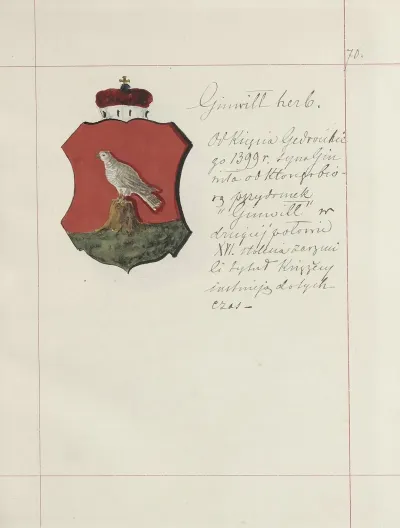 70.
Ginwitt herb.
Od Księcia Gedroickie
go 1399 r. syna Gin
wiła od którego bio-
rą przydomek
"Ginwitt" w
drugiej połowie
XVI. stulecia zarzuci
li tytuł Książęcy
istnieją dotych-
czas –